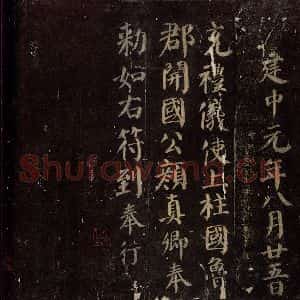 建中元年八月廿五日
充禮儀使上柱國魯
郡開國公顏真卿奉
勅如右符到奉行
Shufawang.cn